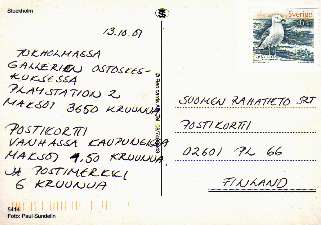 Stockholm
13.10.01
TUKHOLMASSA
GALLERIEN OSTOSKES-
KUKSESSA
PLAYSTATION 2
MAKSOI 3650 KRUUNUA
POSTIKORTTI
VANHASSA KAUPUNGISSA
MAKSOI 4.50 KRUUNUA
JA POSTIMERKKI
6 KRUUNUA
5414
Foto: Paul Sundelin
Sverige
SUOMEN RAHATIETO SRT
POSTIKORTTI
02601 PL 66
FINLAND